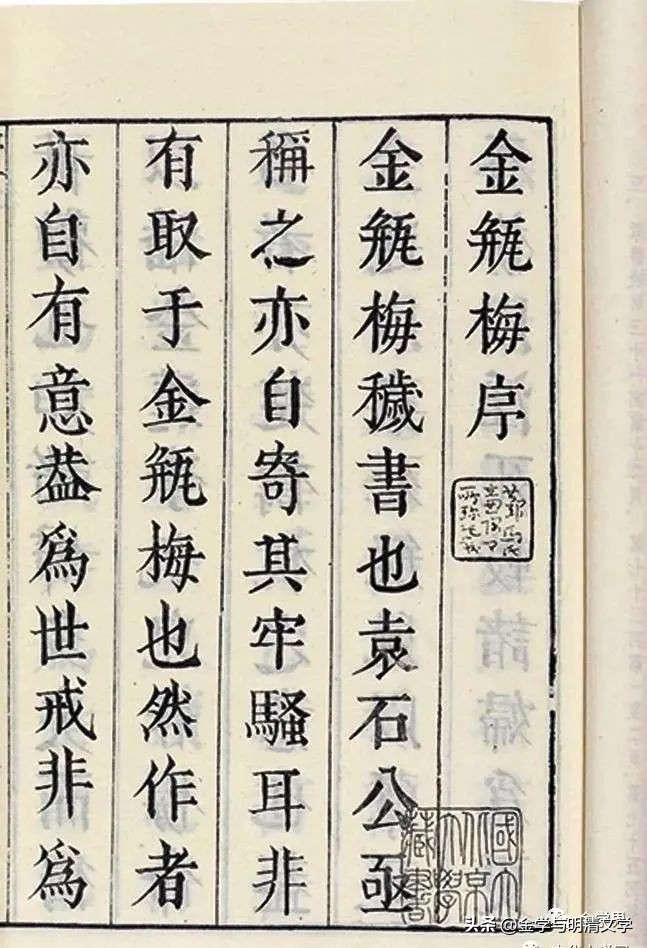 金瓶梅序
金瓶梅穢書也袁石公亟
稱之亦自寄其牢騷耳非
有取于金瓶梅也然作者
亦自有意葢爲世戒非爲
國立北京大學藏書
头条@金学与明清文学